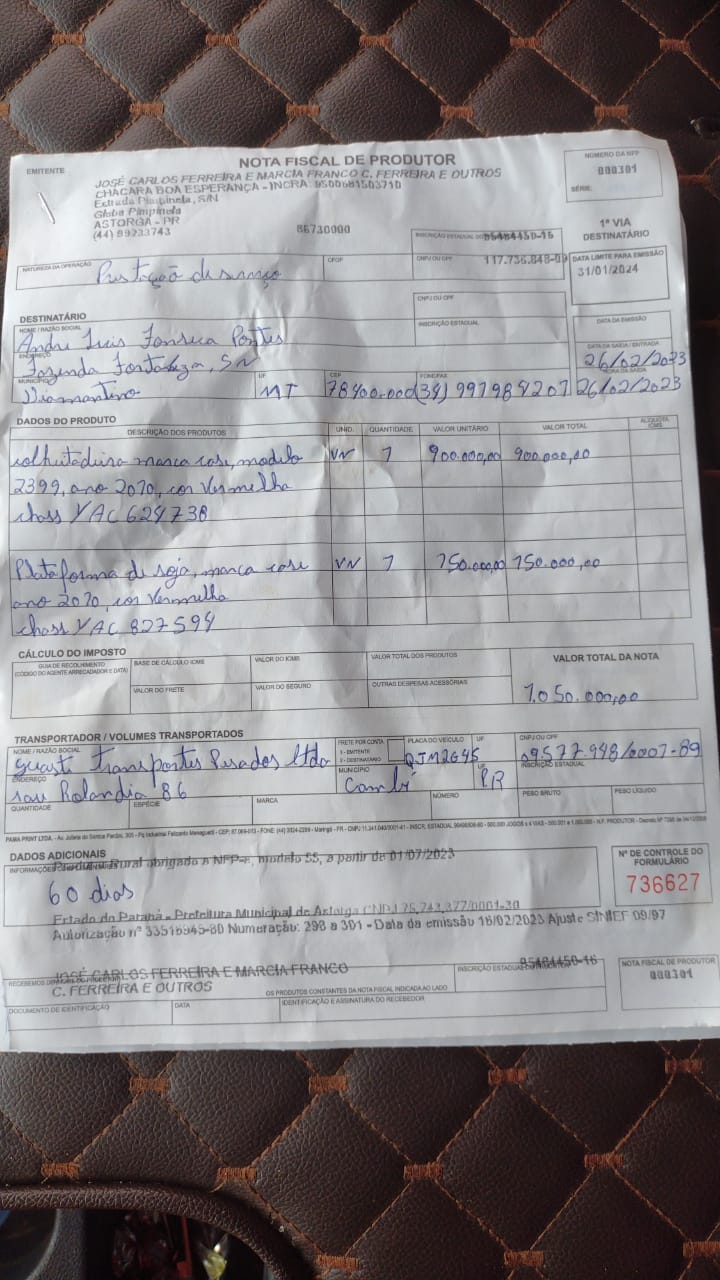 NOTA FISCAL DE PRODUTOR
EMITENTE
JOSÉ CARLOS FERREIRA E MARCIA FRANCO C. FERREIRA E OUTROS
CHACARA BOA ESPERANÇA - INCRA: 9500681503710
Estrada Pimpinela, S/N
Gleba Pimpinela
ASTORGA - PR
(44) 99233743
86730000
NÚMERO DA NFP
000301
SÉRIE:
1ª VIA
DESTINATÁRIO
INSCRIÇÃO ESTADUAL DO
95484450-16
NATUREZA DA OPERAÇÃO
Prestação de serviço
CFOP
CNPJ OU CPF
117.736.848-0
DATA LIMITE PARA EMISSÃO
31/01/2024
DESTINATÁRIO
CNPJ OU CPF
NOME / RAZÃO SOCIAL
Andre Luis Fonseca Pontes
INSCRIÇÃO ESTADUAL
DATA DA EMISSÃO
ENDEREÇO
Fazenda Fortaleza, SN
DATA DA SAÍDA / ENTRADA
26/02/2023
MUNICÍPIO
Diamantino
UF
MT
CEP
78400.000
FONE/FAX
(34) 991984207
HORA DA SAÍDA
26/02/2023
DADOS DO PRODUTO
DESCRIÇÃO DOS PRODUTOS
UNID.
QUANTIDADE
VALOR UNITÁRIO
VALOR TOTAL
ALÍQUOTA ICMS
colheitadeira marca case, modelo
VN
1
900.000,00
900.000,00
2399, ano 2010, cor Vermelha
chass YAC 624738
Plataforma de soja, marca case
VN
1
150.000,00
150.000,00
ano 2010, cor Vermelha
chass YAC 827594
CÁLCULO DO IMPOSTO
GUIA DE RECOLHIMENTO
(CÓDIGO DO AGENTE ARRECADADOR E DATA)
BASE DE CÁLCULO ICMS
VALOR DO ICMS
VALOR TOTAL DOS PRODUTOS
VALOR TOTAL DA NOTA
VALOR DO FRETE
VALOR DO SEGURO
OUTRAS DESPESAS ACESSÓRIAS
1.050.000,00
TRANSPORTADOR / VOLUMES TRANSPORTADOS
NOME / RAZÃO SOCIAL
Transportes Pesados ltda
FRETE POR CONTA
1 - EMITENTE
2 - DESTINATÁRIO
PLACA DO VEÍCULO
QJM2G45
UF
CNPJ OU CPF
09577948/0007-89
ENDEREÇO
rau Rolandia 86
MUNICÍPIO
Cambé
UF
PR
INSCRIÇÃO ESTADUAL
QUANTIDADE
ESPÉCIE
MARCA
NÚMERO
PESO BRUTO
PESO LÍQUIDO
DADOS ADICIONAIS
Produtor Rural obrigado a NFP-e, modelo 55, a partir de 01/07/2023
60 dias
Estado do Paraná - Prefeitura Municipal de Astorga CNPJ 75.743.377/0001-30
Autorização nº 33516945-80 Numeração: 298 a 301 - Data da emissão 16/02/2023 Ajuste SINIEF 09/97
Nº DE CONTROLE DO
FORMULÁRIO
736627
JOSÉ CARLOS FERREIRA E MARCIA FRANCO
C. FERREIRA E OUTROS
INSCRIÇÃO ESTADUAL DO
95484450-16
OS PRODUTOS CONSTANTES DA NOTA FISCAL INDICADA AO LADO
NOTA FISCAL DE PRODUTOR
000301
DOCUMENTO DE IDENTIFICAÇÃO
DATA
IDENTIFICAÇÃO E ASSINATURA DO RECEBEDOR